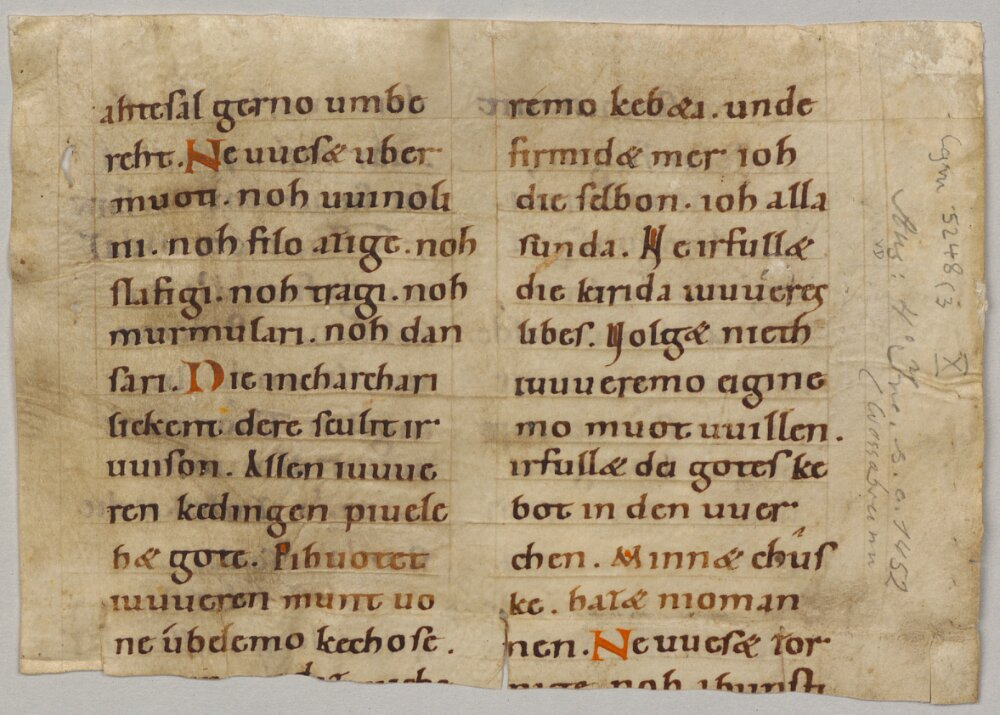 ahtesal gerno umbe
reht. Ne uuesæ uber
muoti. noh uuinoli
ni. noh filo azige. noh
slafigi. noh tragi. noh
murmulari. noh dan
sari. Die incharchari
liekent dere sculit ir
uuison. Allen iuuue
ren kedingen piuele
hæ gote. Pihuotet
iuuueren munt uo
ne úbelemo kechose.
remo kebæi. unde
firmidæ mer ioh
die selbon. ioh alla
sunda. Ne irfullæ
die kirida iuuúeres
libes. Nolgæ nieth
iuuueremo eigine
mo muot uuillen.
irfullæ dei gotes ke
bot in den uuer
chen. Minnæ chûs
ke. hazæ nioman
nen. Ne uuesæ zor
nige. noh ibunsti
Cgm 5248 (3
X
s. a. 1452